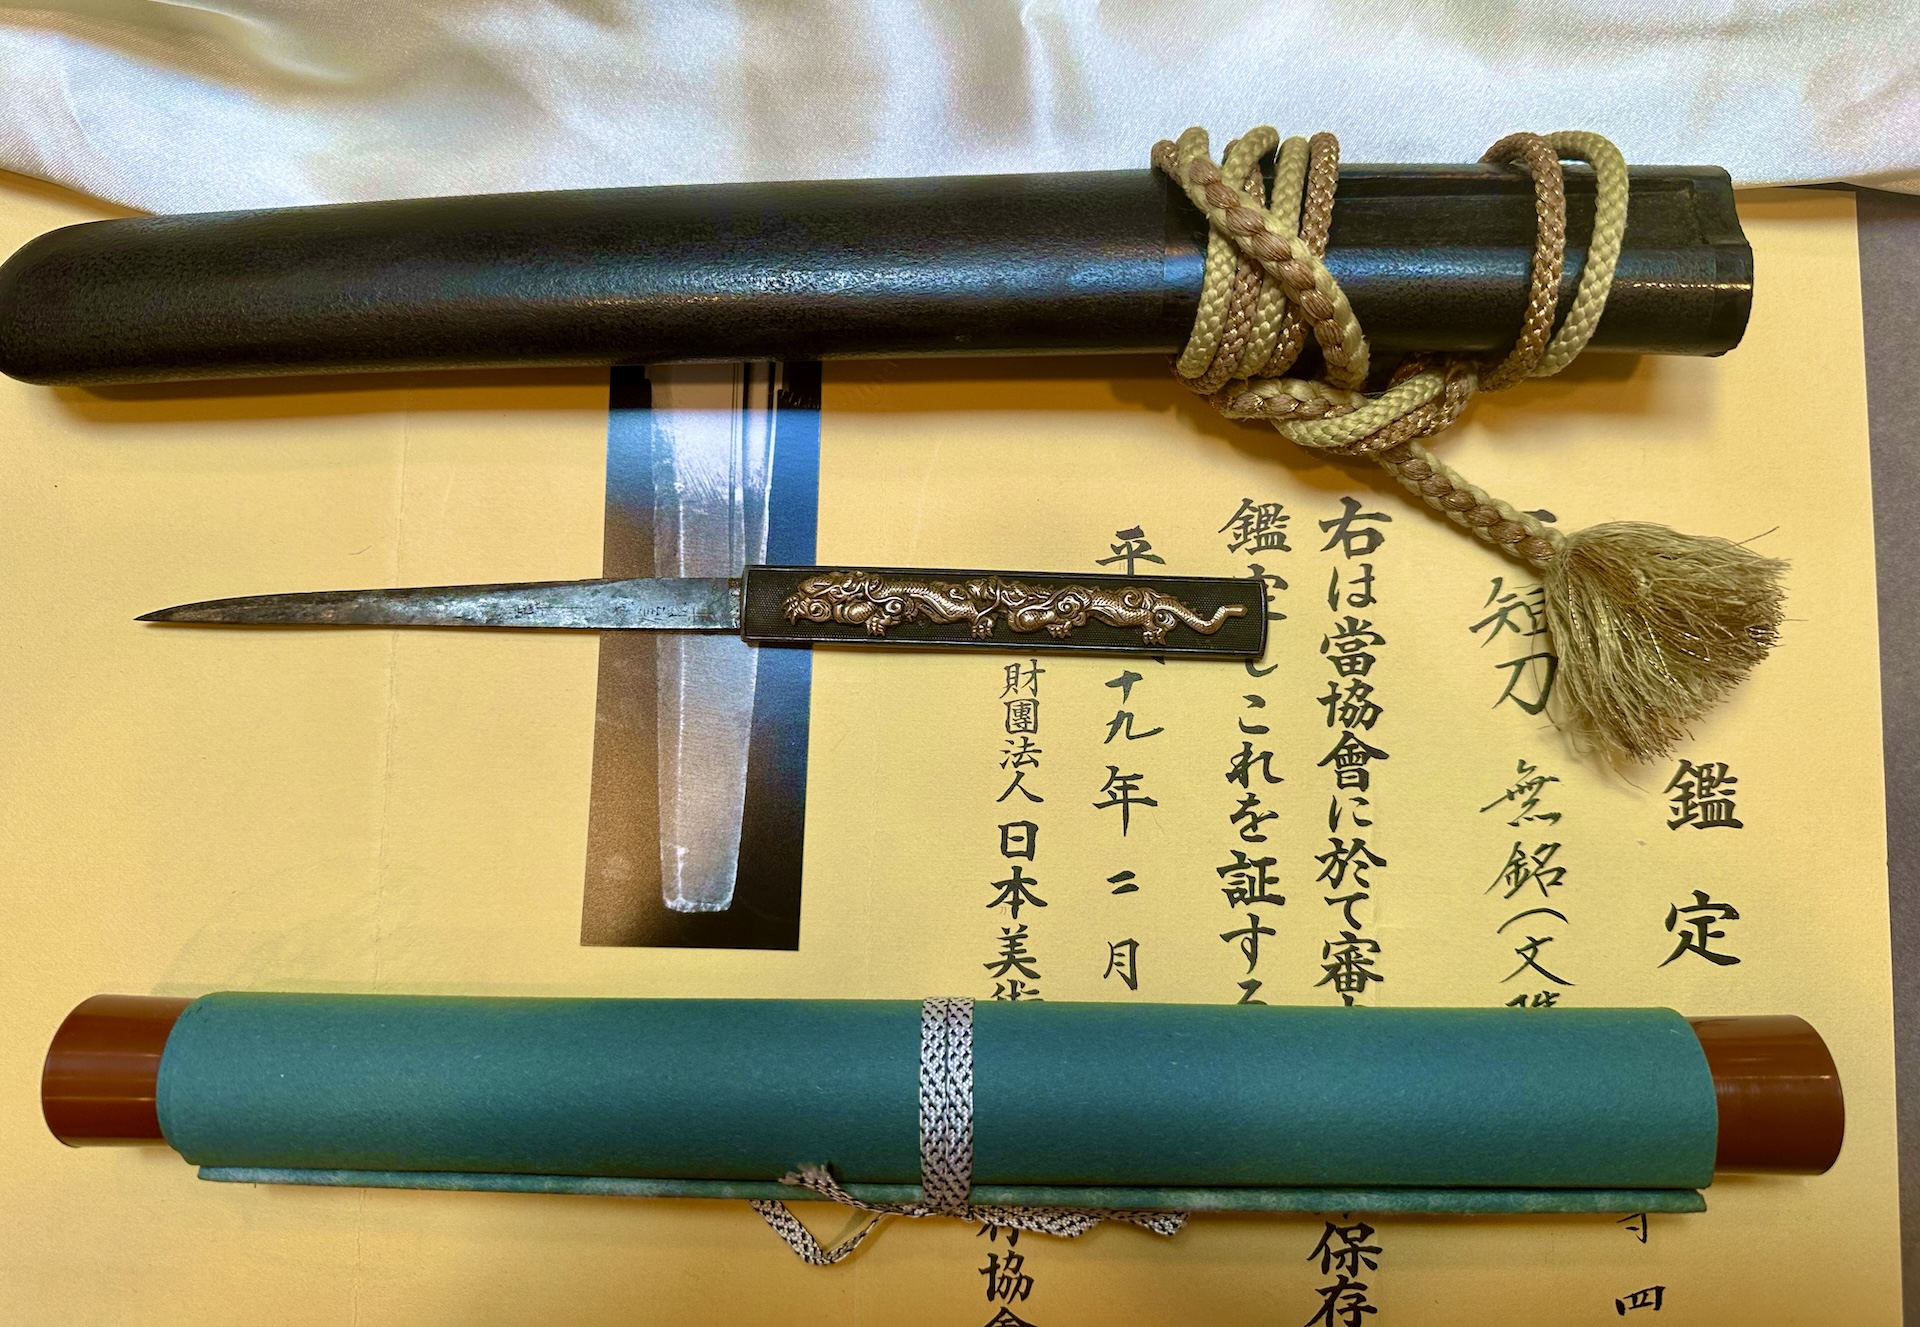 鑑定
短刀 無銘(文
右は當協會に於て審
保存
鑑定しこれを証する
平 十九年二月
財團法人日本美術
協會
四